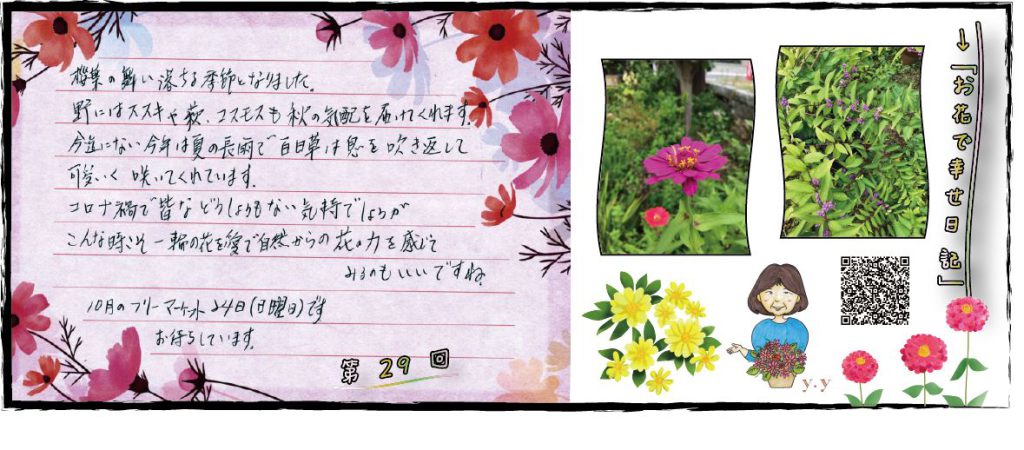 桜葉の舞い落ちる季節となりました。
野にはススキや萩、コスモスも秋の気配を届けてくれます。
今迄にない今年は夏の長雨で百日草は息を吹き返して
可愛いく咲いてくれています。
コロナ禍で皆などうしようもない気持でしょうが
こんな時こそ一輪の花を愛で自然からの花の力を感じて
みるのもいいですね。
10月のフリーマーケット24日(日曜日)です
お待ちしています。
第29回
↓「お花で幸せ日記」
y.y